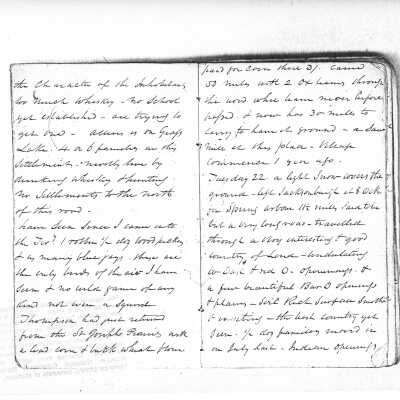 the Character of the Inhabitants
too Much Whiskey - no School
yet established - are trying to
get one - is on Grass
Lake. 4 or 6 families in this
Settlement - mostly live by
drinking whiskey & hunting
no Settlements to the north
of this road -
have Seen Since I came into
the Ter. 1 robbin
& as many blue jays - these are
the only birds of the air I have
Seen & no wild game of any
kind not even a Squirrel
Thompson had just returned
from the St Josephs Prairie with
a load corn & buckwheat flour
paid for Corn there 3/. Came
50 miles with 2 Ox teams through
the wood where team never before
passed. & now has 30 miles to
carry to ham it ground - a Saw
mill at this place - Village
commenced 1 year ago.
Tuesday 22 a light Snow covers the
ground - left Jacksonburgh at 8 Oclk
for Spring arbour miles said to be
but a very long - travelled
through a very interesting & good
country of Land - undulating
W. Oak & red O. openings. &
a few beautiful Bar O openings
& plains - Soil Rich Surface Smooth
- the best country yet
Seen. families moved in
on July last - Indean Openings